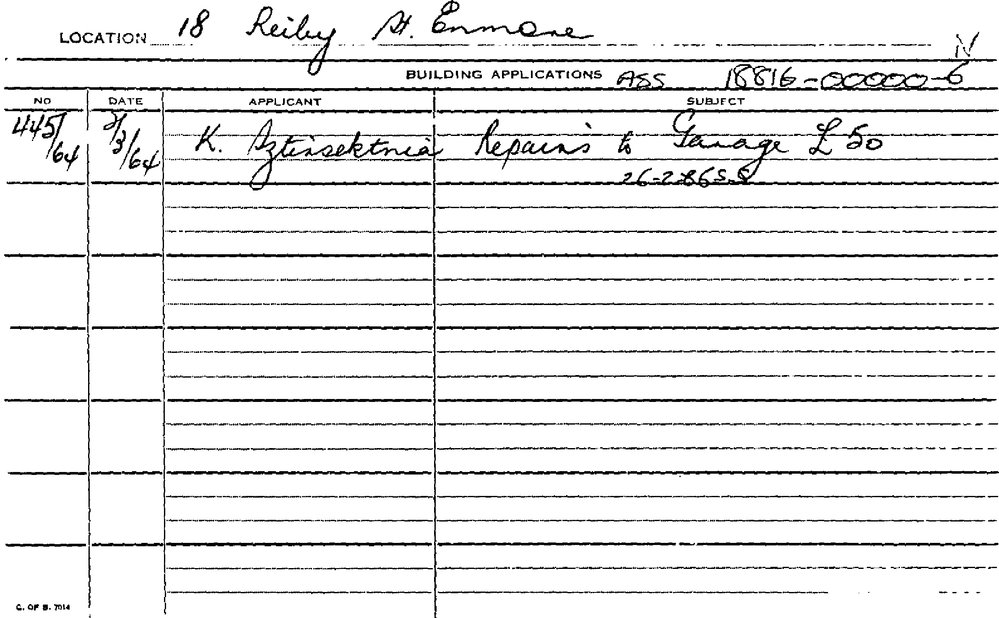 LOCATION 18 Reiby St. Enmore
N
BUILDING APPLICATIONS ASS 18816-00000-6
NO DATE APPLICANT SUBJECT
445/64 /3/64 K. Repairs to Garage £ 50
26-2-86 S.S
C. OF B. 7014